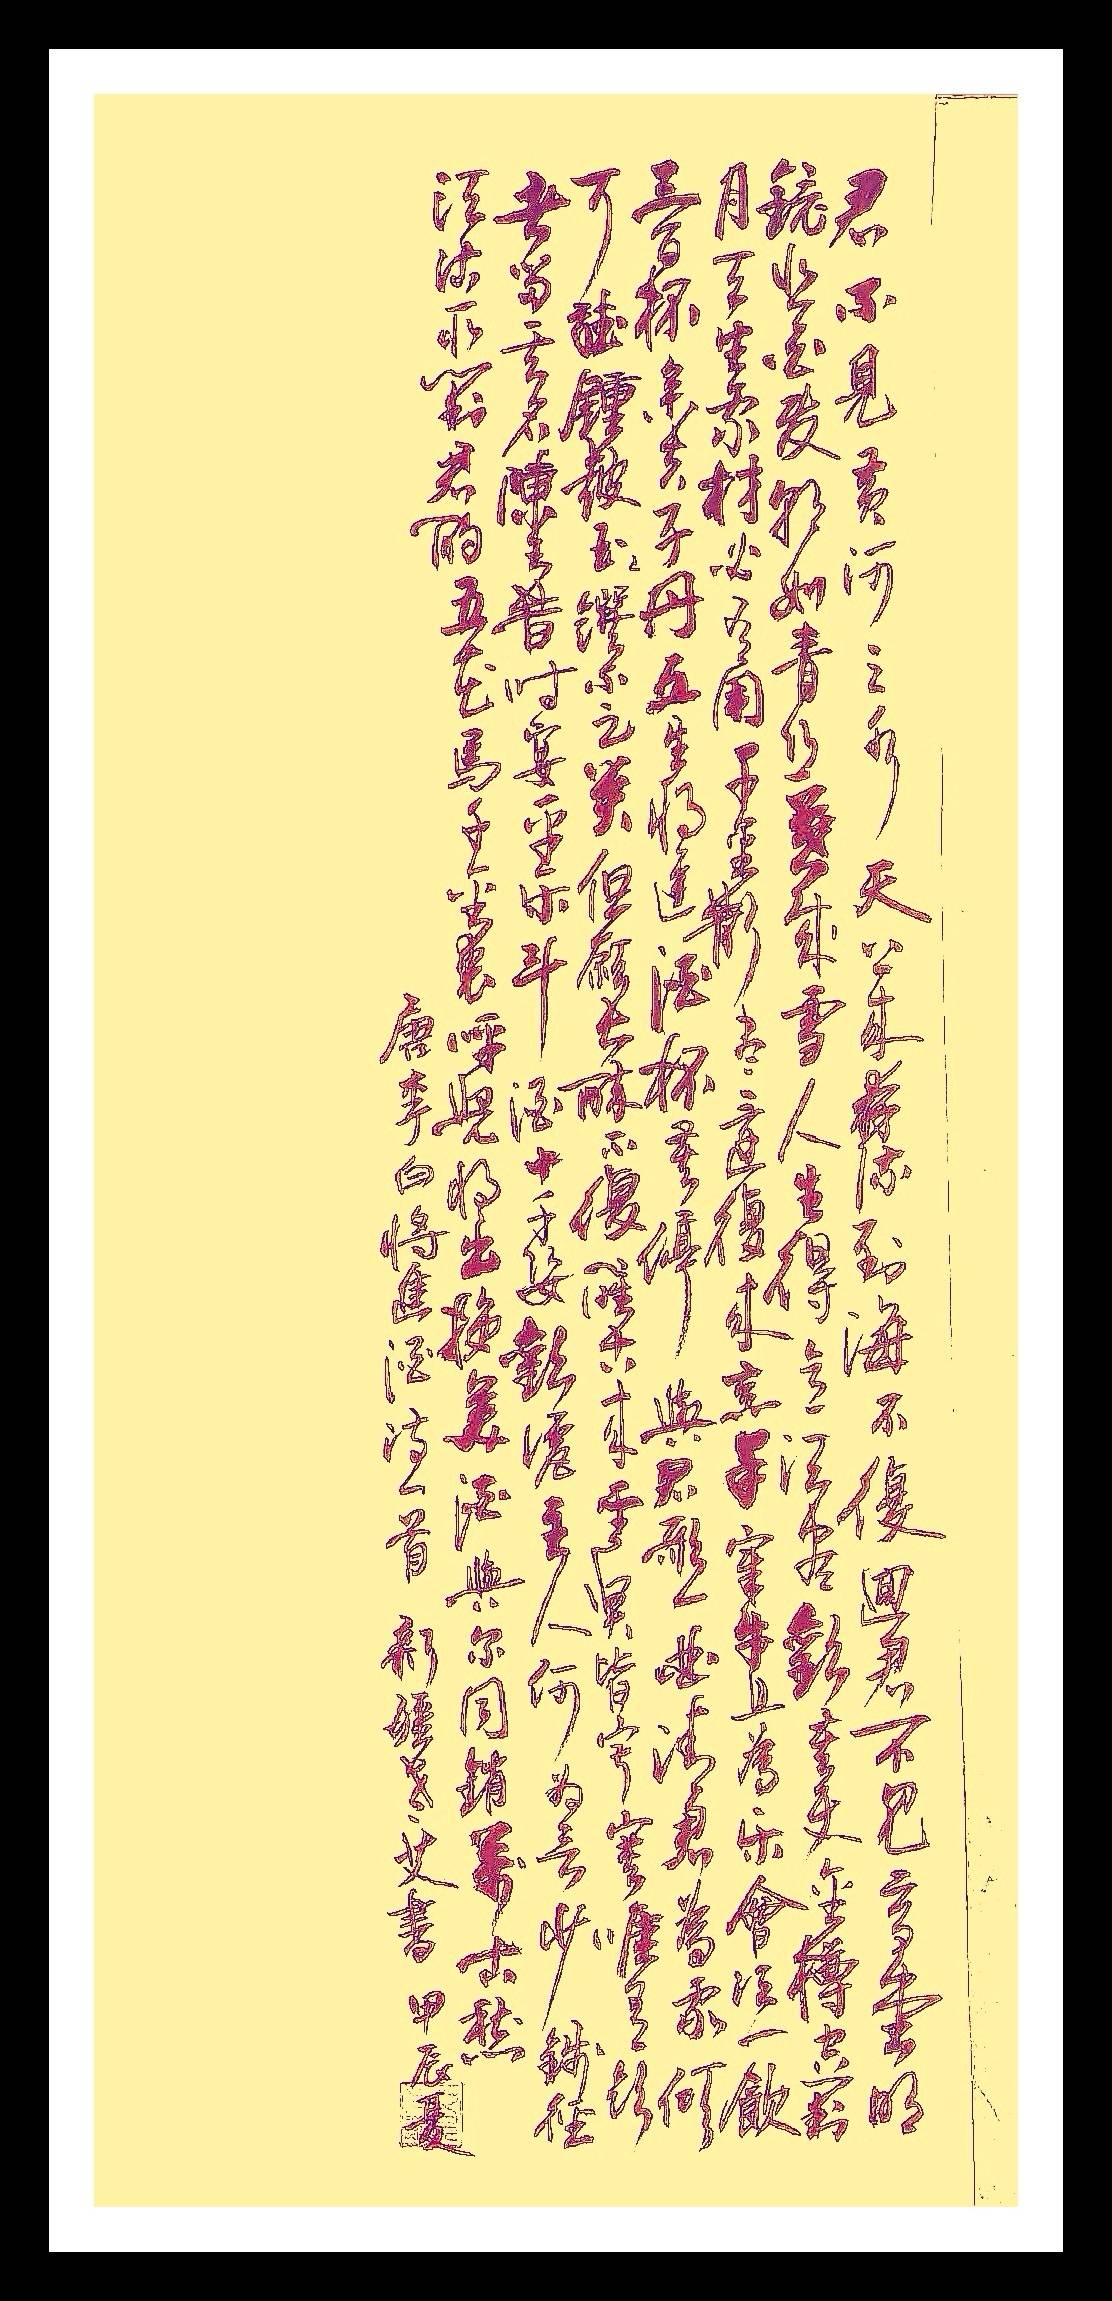 君不見黃河之水天上來奔流到海不復迴君不見高堂明
鏡悲白发朝如青絲暮成雪人生得意須盡歡莫使金樽空對
月天生我材必有用千金散盡還復來烹羊宰牛且為樂會須一飲
三百杯岑夫子丹丘生將進酒杯莫停與君歌一曲請君為我傾
耳聽鐘鼓玉饌不足貴但願長醉不復醒古來聖賢皆寂寞唯有飲
者留其名陳王昔時宴平樂斗酒十千恣歡謔主人何為言少錢徑
須沽取對君酌五花馬千金裘呼兒將出換美酒與尔同銷萬古愁
唐李白將進酒詩一首 新疆艾書 甲辰夏